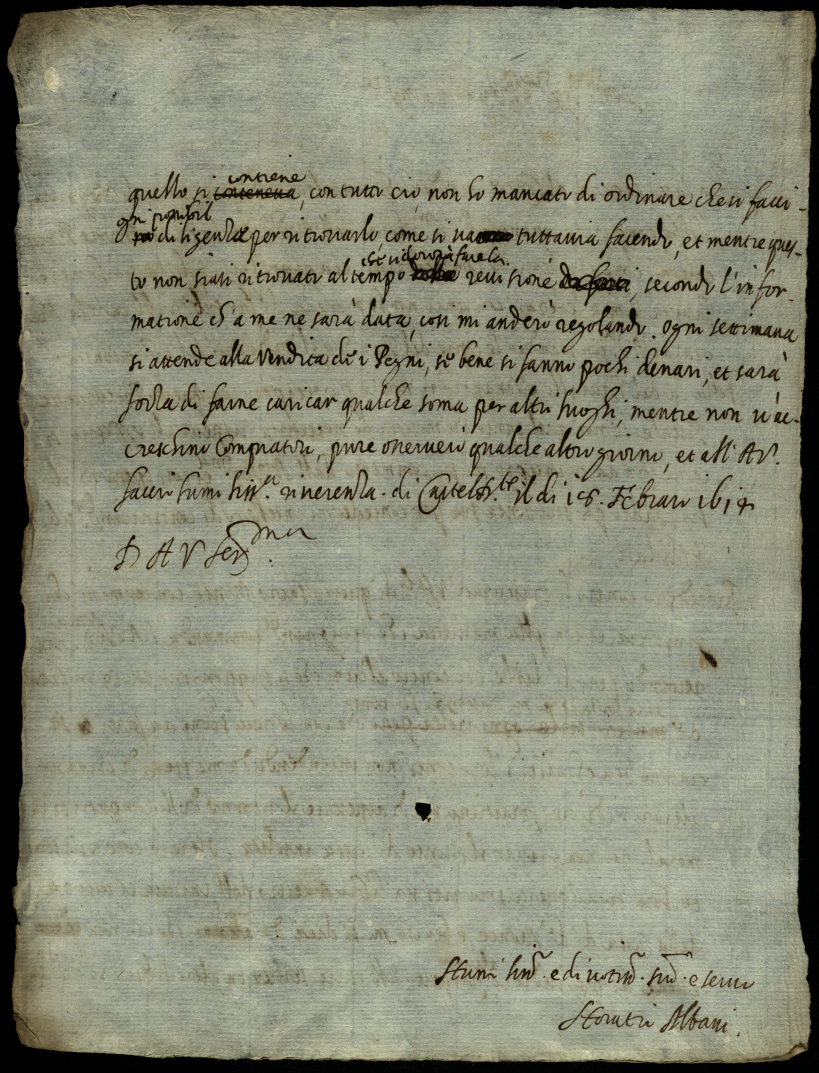 contiene
quello si conteneva, con tutto ciò, non ho mancato di ordinare che si facci-
ogni possibil
diligenza per ritrovarlo, come si va tuttavia facendo, et mentre ques-
che si dovrà fare la
to non siasi ritrovato al tempo della revisione da farsi, secondo l'infor-
matione ch'a me ne sarà data, così mi anderò regolando. ogni settimana
si attende alla vendita de i Pegni, se bene si fanno pochi denari, et sarà
forza di farne caricar qualche soma per altri luoghi, mentre non v'ac-
creschino Compratori, pure osserverò qualche altro giorno, et all' A.V.
facio humiliss.a riverenza. di Casteld.te il di 18. Febraro 1614
D A V Ser.ma
Humiliss.o e divotiss.o sud.o e servo
Horatio Albani.